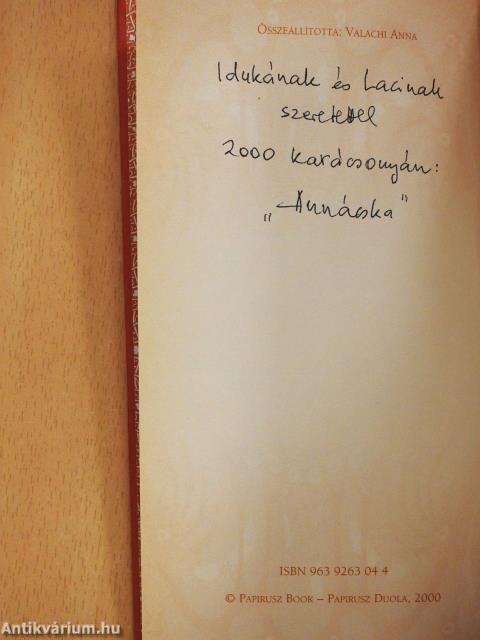 ÖSSZEÁLLÍTOTTA: VALACHI ANNA
Idukának és Lacinak
szeretettel
2000 karácsonyán:
„Annácska"
ISBN 963 9263 04 4
© PAPIRUSZ BOOK – PAPIRUSZ DUOLA, 2000
Antikvárium.hu